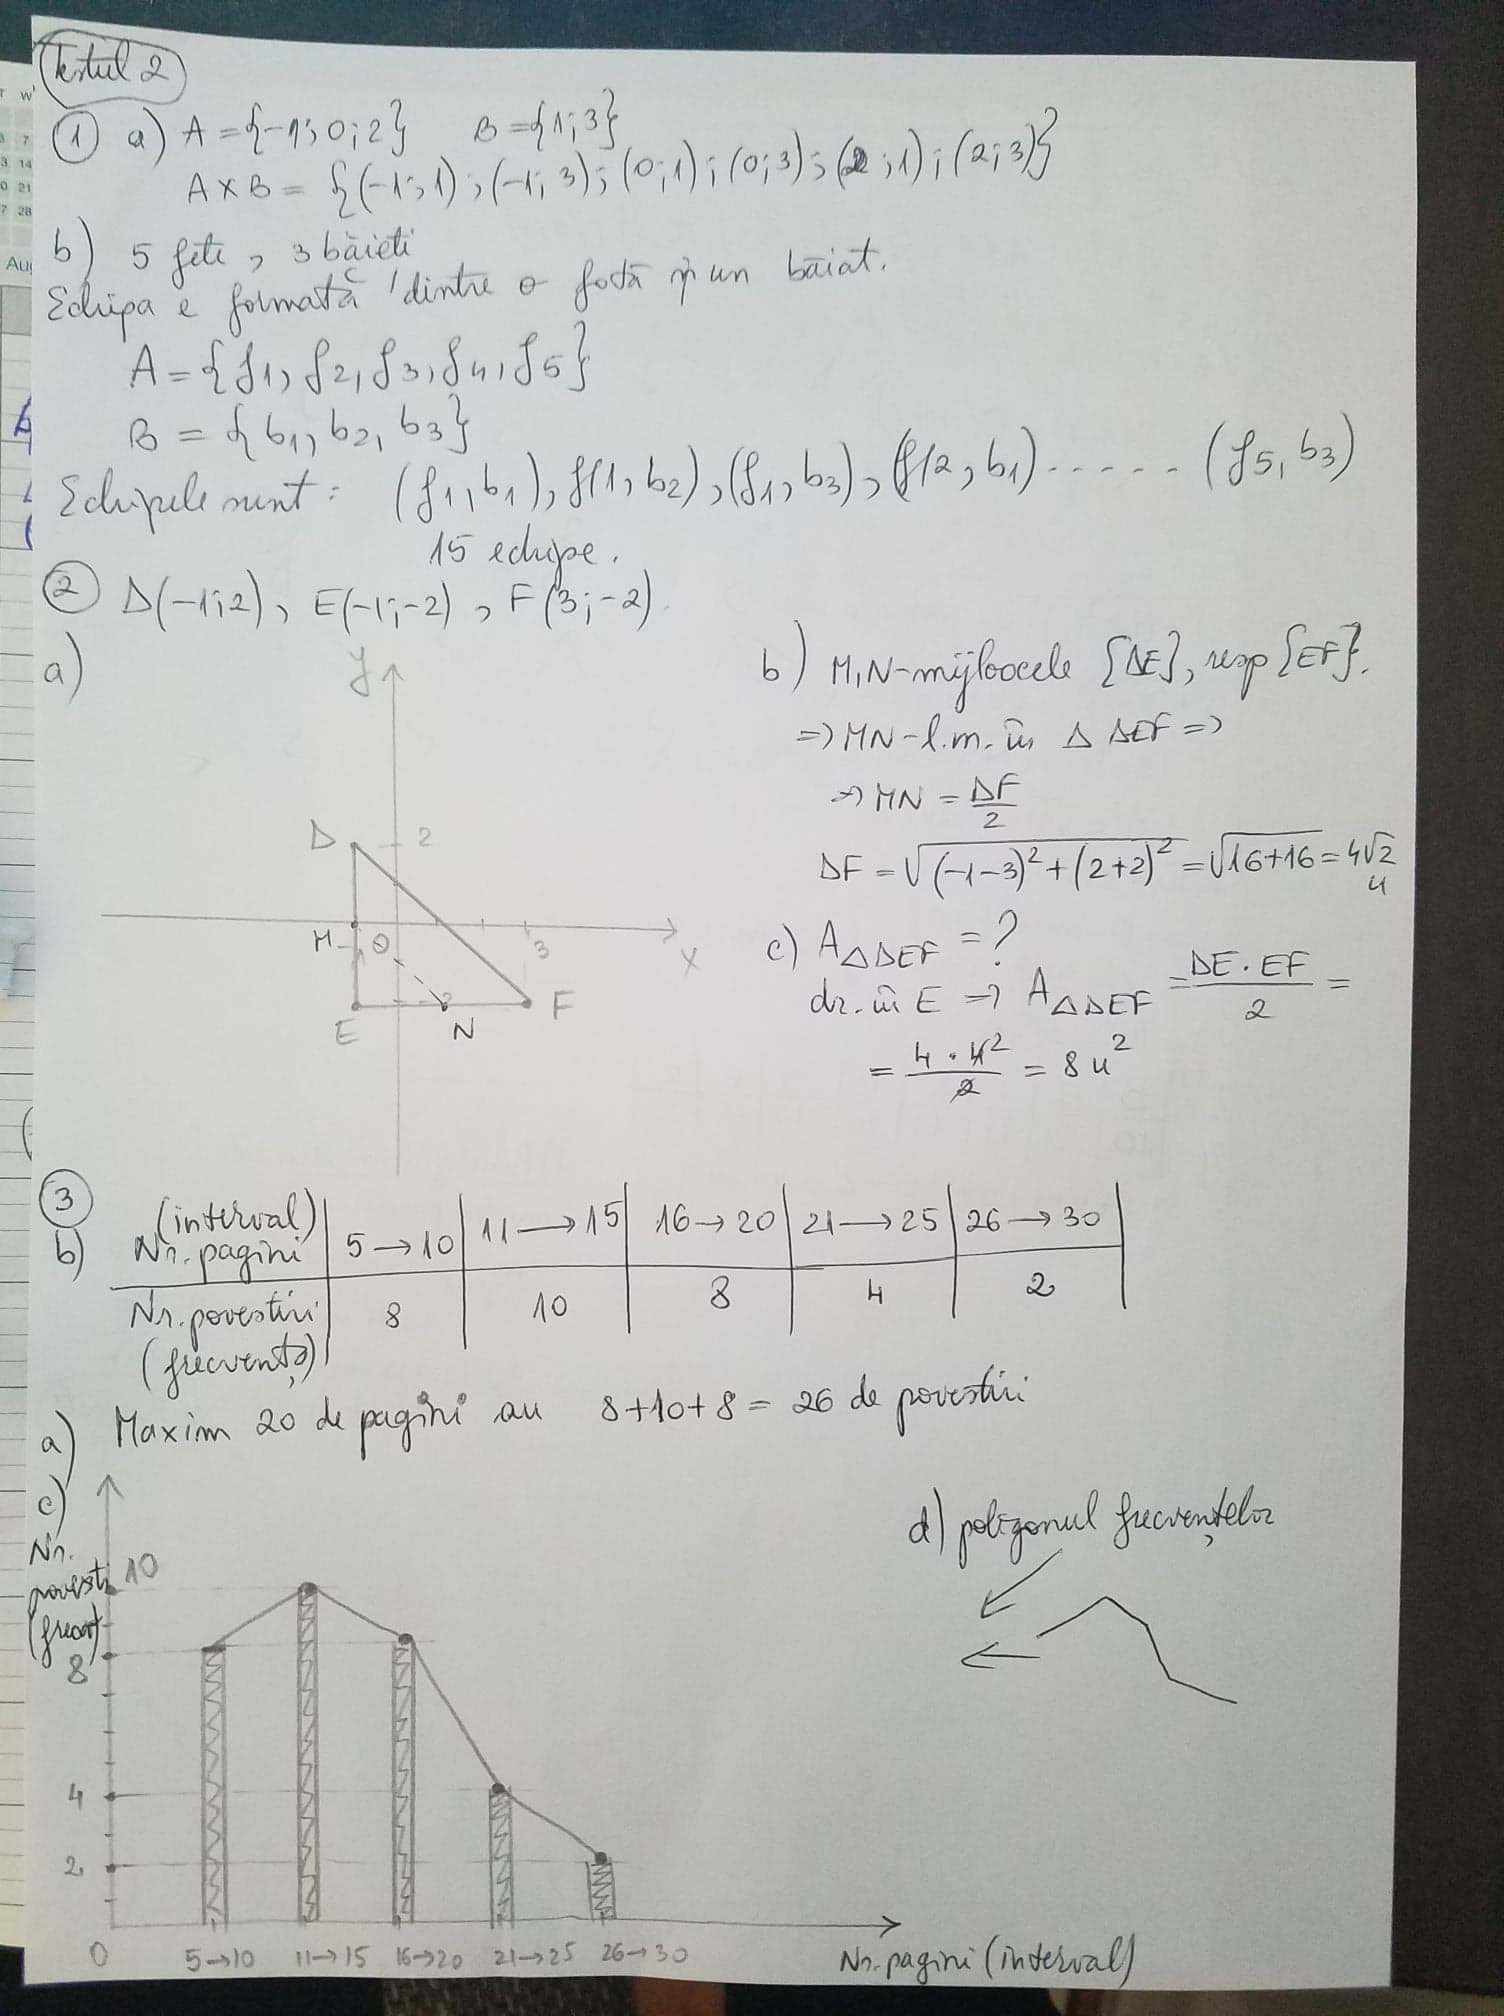 Testul 2
1 a) A = {-1; 0; 2} B = {1; 3}
A X B = {(-1; 1); (-1; 3); (0; 1); (0; 3); (2; 1); (2; 3)}
b) 5 fete, 3 băieți
Echipa e formată dintre o fată și un băiat.
A = {f1, f2, f3, f4, f5}
B = {b1, b2, b3}
Echipele sunt: (f1, b1), f(1, b2), (f1, b3), (f2, b1) ...... (f5, b3)
15 echipe.
2 D(-1; 2), E(-1; -2), F(3; -2).
a)
y
D 2
M O 3 x
E N F
b) M, N - mijloacele [DE], resp [EF].
=> MN - l.m. în Δ DEF =>
=> MN = DF/2
DF = √(-1-3)² + (2+2)² = √16+16 = 4√2 u
c) AΔDEF = ?
dr. în E => AΔDEF = DE · EF / 2 =
= 4 · 4² / 2 = 8 u²
3
b) (interval) Nr. pagini 5→10 11→15 16→20 21→25 26→30
Nr. povestiri (frecvență) 8 10 8 4 2
a) Maxim 20 de pagini au 8+10+8 = 26 de povestiri
c)
Nr.
povesti 10
(frecv)
8
4
2
0 5→10 11→15 16→20 21→25 26→30
Nr. pagini (interval)
d) poligonul frecvențelor